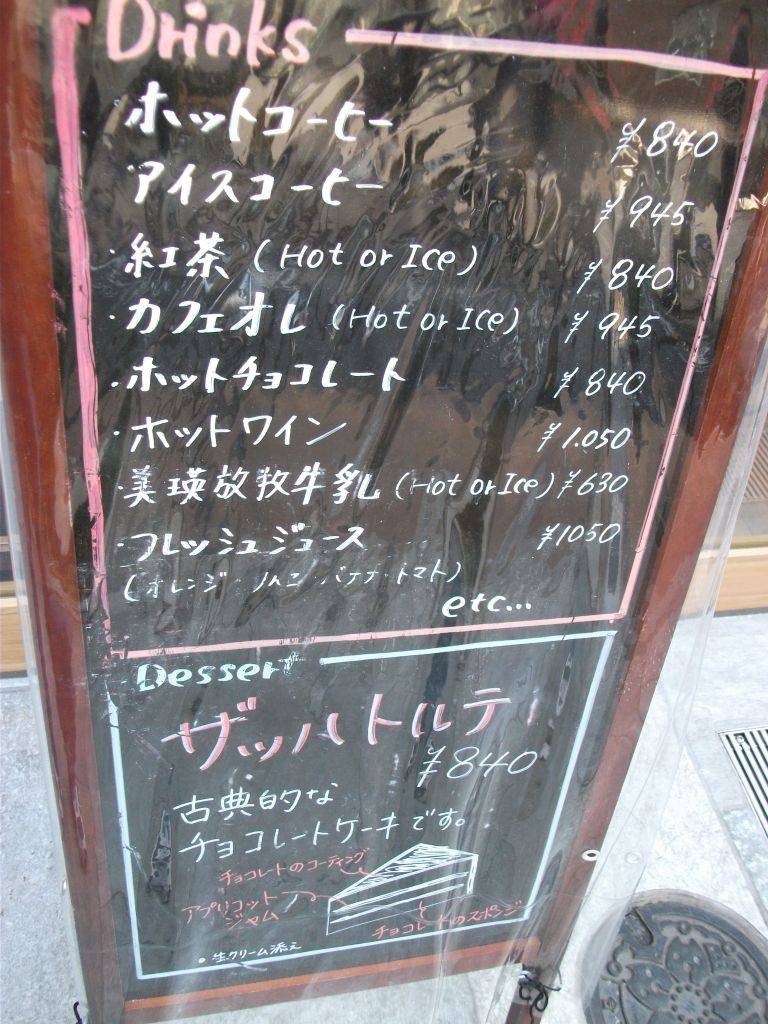 Drinks
ホットコーヒー ¥840
アイスコーヒー ¥945
・紅茶 (Hot or Ice) ¥840
・カフェオレ (Hot or Ice) ¥945
・ホットチョコレート ¥840
・ホットワイン ¥1.050
・美瑛放牧牛乳 (Hot or Ice) ¥630
・フレッシュジュース ¥1050
(オレンジ・りんご・バナナ・トマト)
etc...
Dessert
ザッハトルテ
¥840
古典的な
チョコレートケーキです。
チョコレートのコーティング
アプリコット
ジャム
チョコレートのスポンジ
・生クリーム添え